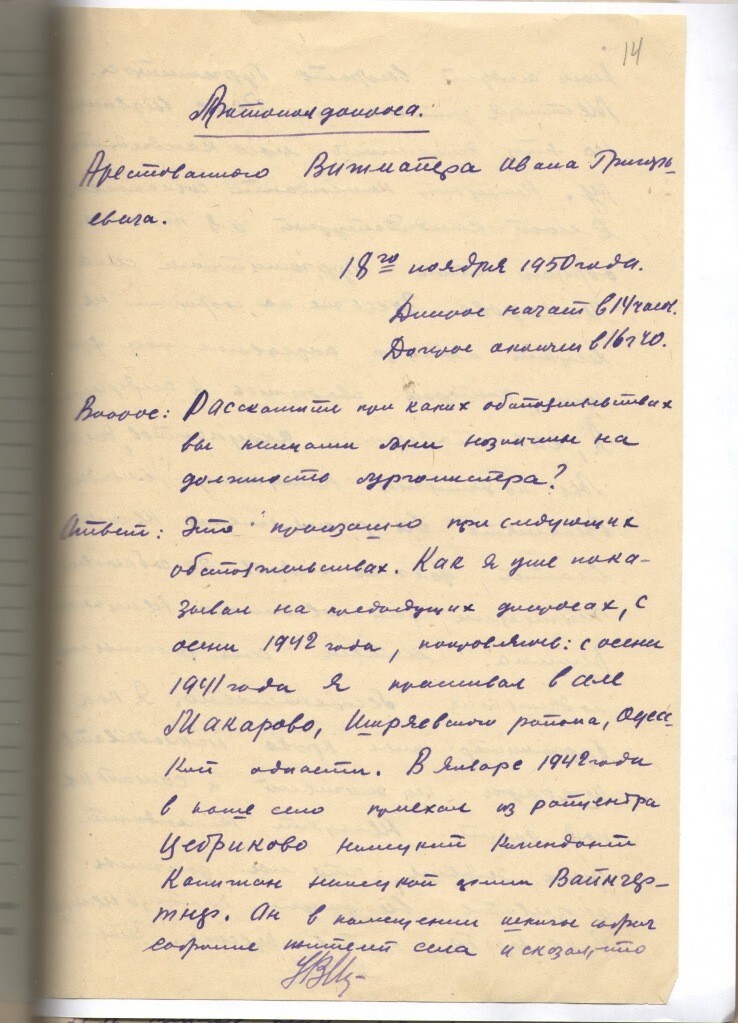 14
Протокол допроса.
Арестованного Вижматера Ивана Григорь-
евича.
18го ноября 1950 года.
Допрос начат в 14 часов.
Допрос окончен в 16 ч 40.
Вопрос: Расскажите при каких обстоятельствах
вы немцами были назначены на
должность бургомистра?
Ответ: Это произошло при следующих
обстоятельствах. Как я уже пока-
зывал на предыдущих допросах, с
осени 1942 года, поправляюсь: с осени
1941 года я проживал в селе
Макарово, Ширяевского района, Одес-
кой области. В январе 1942 года
в наше село приехал из райцентра
Цебриково немецкий комендант
Капитан немецкой армии Вайнгер-
тнер. Он в помещении школы собрал
собрание жителей села и сказал, что